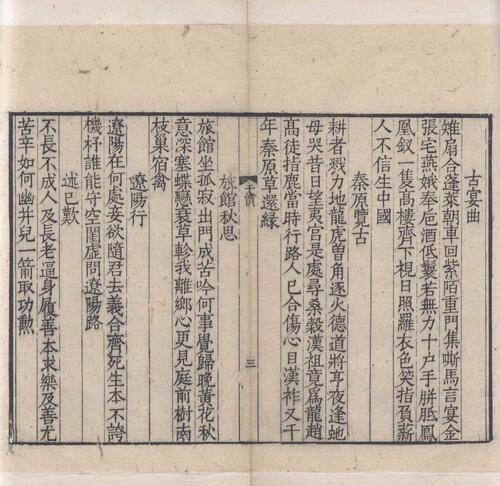 古宴曲
雉扇合蓬萊朝車回紫陌重門集嘶馬言宴金
張宅燕娥奉巵酒低鬟若無力十戶手胼胝鳳
凰釵一隻高樓齊下視日照羅衣色笑指負薪
人不信生中國
秦原覽古
耕者戮力地龍虎曾角逐火德道將亨夜逢虵
母哭昔日望夷宮是處尋桑穀漢祖竟為龍趙
高徒指鹿當時行路人已合傷心目漢祚又千
年秦原草還綠
三
旅館秋思
旅館坐孤寂出門成苦吟何事覺歸晚黃花秋
意深寒蝶戀衰草軫我離鄉心更見庭前樹南
枝巢宿禽
遼陽行
遼陽在何處妾欲隨君去義合齊死生本不誇
機杼誰能守空閨虛問遼陽路
述己歎
不長不成人及長老逼身履善本求樂及善尤
苦辛如何幽并兒一箭取功勳